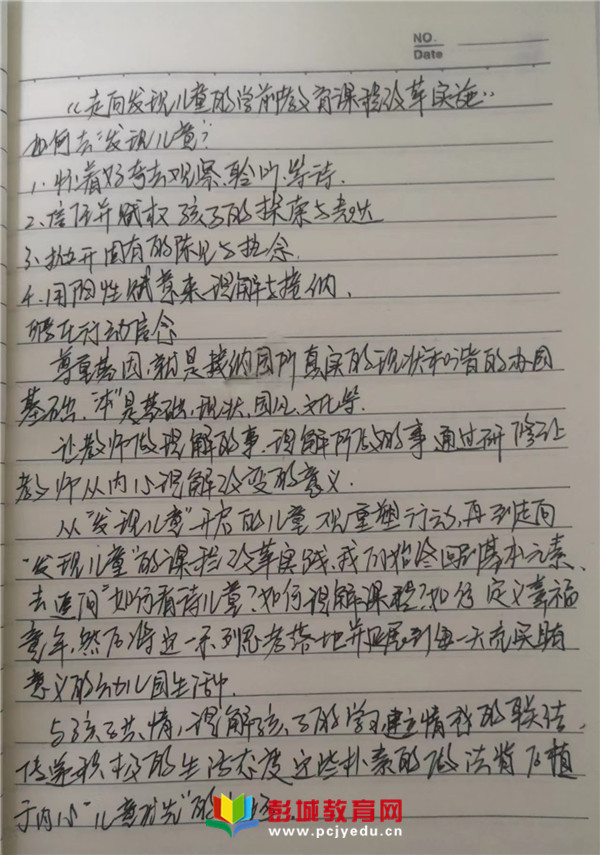 NO.
Date
《走向发现儿童的学前教育课程改革实施》
如何去"发现儿童"?
1.怀着好奇去观察、聆听、等待.
2.信任并赋权孩子的探索与表达
3.抛开固有的陈见与执念.
4.用阳性赋意来理解与接纳.
践行行动信念
尊重基因,就是接纳园所真实的现状和皆的办园
基础."本"是基础,现状,园风、文化等.
让教师做理解的事.理解所做的事.通过研修让
教师从内心理解改变的意义.
从"发现儿童"开启的儿童观重塑行动,再到走向
"发现儿童"的课程改革实践,我们始终回到基本元素、
去追问"如何看待儿童?如何理解课程?如何定义幸福
童年,然后将这一系列思考落地并延展到每一天充实且有
意义的幼儿园生活中.
与孩子共情,理解孩子的学习建立情感的联结,
传递积极的生活态度这些朴素的做法背后植
于内心"儿童优先"的
彭城教育网
www.pcjyedu.cn